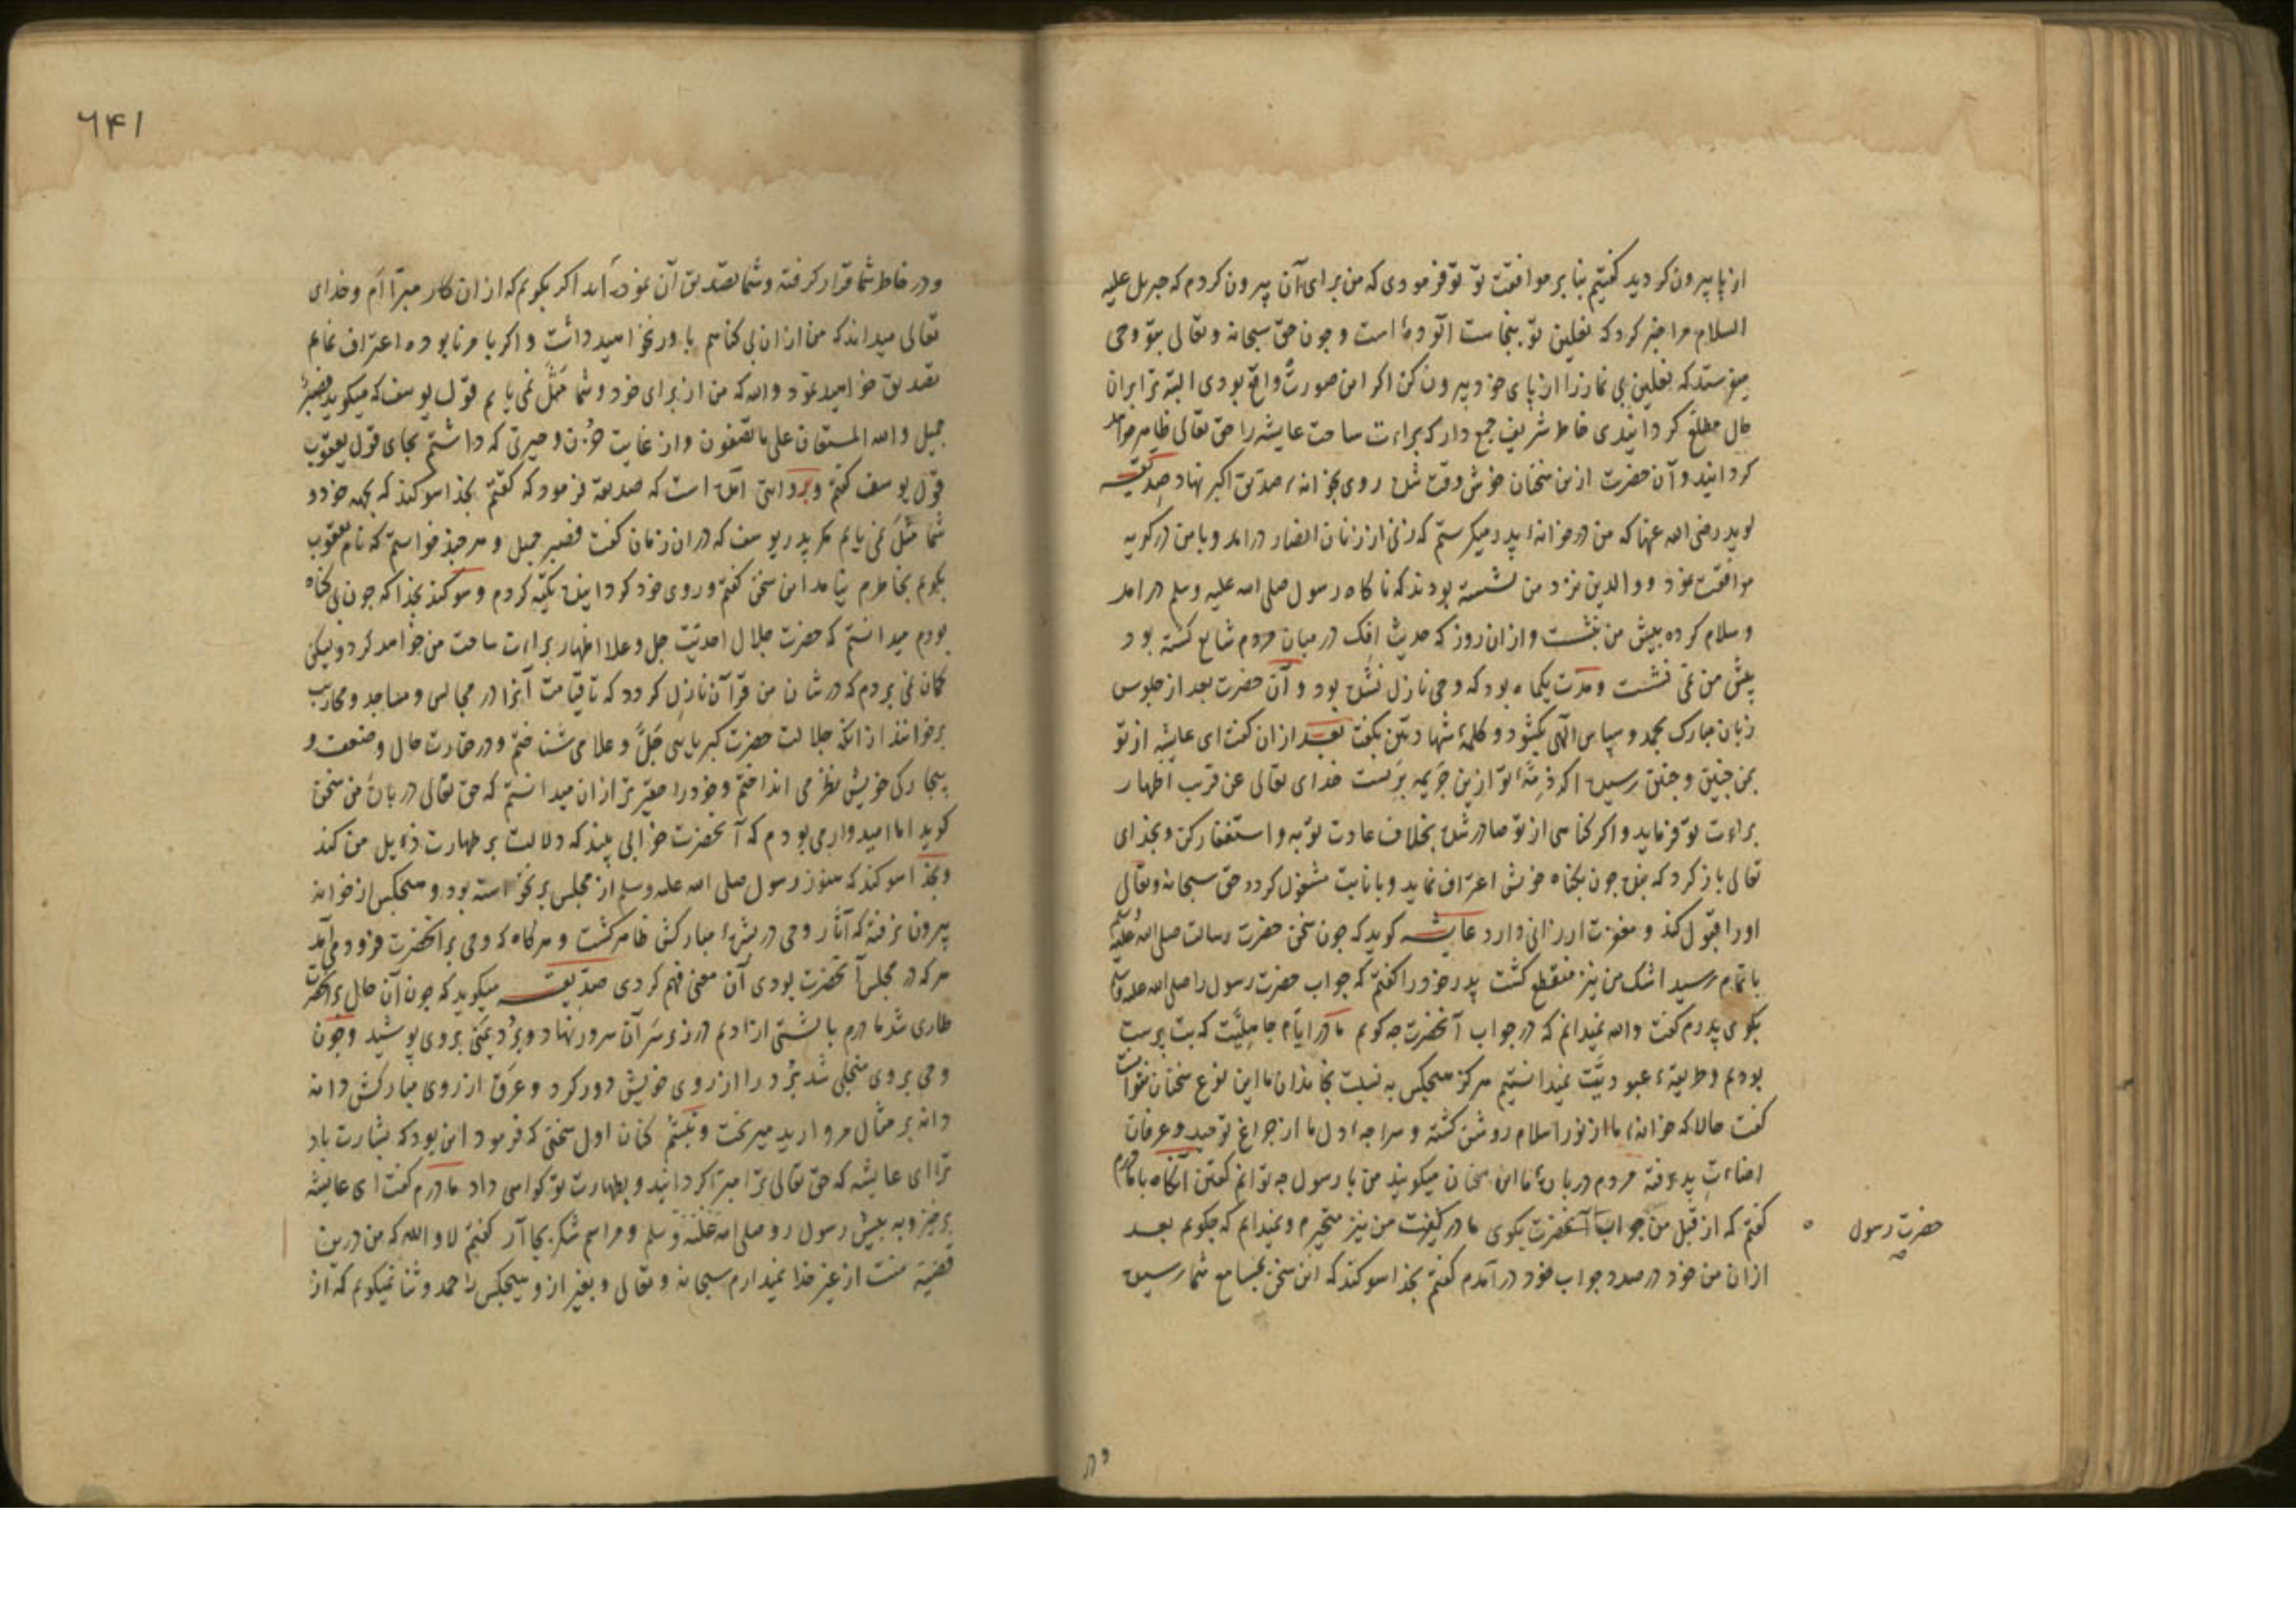 از پا بیرون کردید کفتیم بنا بر موافقت تو تو فرمودی که من برای آن بیرون کردم که جبریل علیه
السلام مرا خبر کرد که نعلین تو بنجاست آلوده است و چون حق سبحانه و تعالی بتو وحی
میفرستد که نعلین بی نماز را از پای خود بیرون کن اکر این صورت واقع بودی البته ترا بران
حال مطلع کردانیدی خاطر شریف جمع دار که براءت ساحت عایشه را حق تعالی ظاهر خواهد
کردانید و آن حضرت ازین سخنان خوش وقت شده روی بخانهٔ صدیق اکبر نهاد صدیقه
کوید رضی الله عنها که من در خانهٔ پدر میکرستم که زنی از زنان انصار درامد و با من در کریه
موافقت نمود و والدین نزد من نشسته بودند که ناکاه رسول صلی الله علیه وسلم درامد
و سلام کرده پیش من بنشست و ازان روز که حدیث افک در میان مردم شایع کشته بود
پیش من نمی نشست و مدت یکماه بود که وحی نازل نشده بود و آن حضرت بعد از جلوس
زبان مبارک بحمد و سپاس الهی بکشود و کلمهٔ شهادتین بکفت بعد ازان کفت ای عایشه از تو
بمن چنین و چنین رسیده اکه ذمّهٔ تو ازین جریمه بریست خدای تعالی عن قریب اظهار
براءت تو فرماید و اکر کناهی از تو صادر شده بخلاف عادت توبه و استغفار کن و بخدای
تعالی باز کرد که بنده چون بکناه خویش اعتراف نماید و بانابت مشغول کردد حق سبحانه و تعالی
او را قبول کند و مغفرت ارزانی دارد عایشه کوید که چون سخن حضرت رسالت صلی الله علیه وسلم
باتمام رسید اشک من نیز منقطع کشت پدر خود را کفتم که جواب حضرت رسول را صلی الله علیه وسلم
بکوی پدرم کفت والله نمیدانم که در جواب آنحضرت چه کویم ما در ایام جاهلیّت که بت پرست
بودیم و طریقهٔ عبودیّت نمیدانستیم هرکز هیچکس به نسبت بخاندان ما این نوع سخنان نتوانست
کفت حالا که خانهٔ ما از نور اسلام روشن کشته و سراچهٔ دل ما از چراغ توحید و عرفان
اضاءت پذیرفته مردم دربارهٔ ما این سخنان میکویند من با رسول چه توانم کفتن آنکاه با مادرم
کفتم که از قبل من جواب آنحضرت بکوی مادر کفت من نیز متحیرم و نمیدانم که چکویم بعد
حضرت رسول
ازان من خود در صدد جواب خود درآمدم کفتم بخدا سوکند که این سخن بمسامع شما رسیده
و در
٦۴١
و در خاطر شما قرار کرفته و شما تصدیق آن نموده آید اکر بکویم که ازان کار مبرّاام و خدای
تعالی میداند که من ازان بی کناهم باور نخواهید داشت و اکر با مر نابوده اعتراف نمایم
تصدیق خواهید نمود والله که من از برای خود و شما مَثَل نمی یابم قول یوسف که میکوید فصبرٌ
جمیل والله المستعان علی ما تصفون و از غایت حزن و حیرتی که داشتم بجای قول یعقوب
قول یوسف کفتم و بروایتی آنک است که صدیقه فرمود که کفتم بخدا سوکند که بجهه خود و
شما مَثَل نمی یابم مکر پدر یوسف که دران زمان کفت فصبر جمیل و هرچند خواستم که نام یعقوب
بکویم بخاطرم نیامد این سخن کفتم و روی خود کردانیده تکیه کردم و سوکند بخدا که چون بی کناه
بودم میدانستم که حضرت جلال احدیّت جل و علا اظهار براءت ساحت من خواهد کرد و لیکن
کمان نمی بردم که در شان من قرآن نازل کردد که تا قیامت آنرا در مجالس و مساجد و محاریب
برخوانند از انکه جلالت حضرت کبریایی جلّ و علا می شناختم و در حقارت حال و ضعف و
بیچارکی خویش نظر می انداختم و خود را حقیرتر ازان میدانستم که حق تعالی درباره من سخن
کوید اما امیدوار می بودم که آنحضرت خوابی بیند که دلالت بر طهارت ذیل من کند
و بخدا سوکند که هنوز رسول صلی الله علیه وسلم از مجلس برنخواسته بود و هیچکس از خانه
بیرون نرفته که آثار وحی در بشرهٔ مبارکش ظاهر کشت و هرکاه که وحی بر آنحضرت فرود می آمد
هرکه در مجلس آنحضرت بودی آن معنی فهم کردی صدّیقه میکوید که چون آن حال بر آنحضرت
طاری شد مادرم بالشتی از ادیم در زیر سَر آن سرور نهاد و بُرد یمنی بروی پوشید و چون
وحی بروی منجلی شد بُرد را از روی خویش دور کرد و عرق از روی مبارکش دانه
دانه بر مثال مروارید میریخت و تبسم کنان اول سخنی که فرمود این بود که بشارت باد
ترا ای عایشه که حق تعالی ترا مبرّا کردانید و بطهارت تو کواهی داد مادرم کفت ای عایشه
برخیز و به پیش رسول رو صلی الله علیه وسلم و مراسم شکر بجا آر کفتم لا والله که من درین
قضیه منت از غیر خدا نمیدارم سبحانه و تعالی و بغیر ازو هیچکس را حمد و ثنا نمیکویم که از